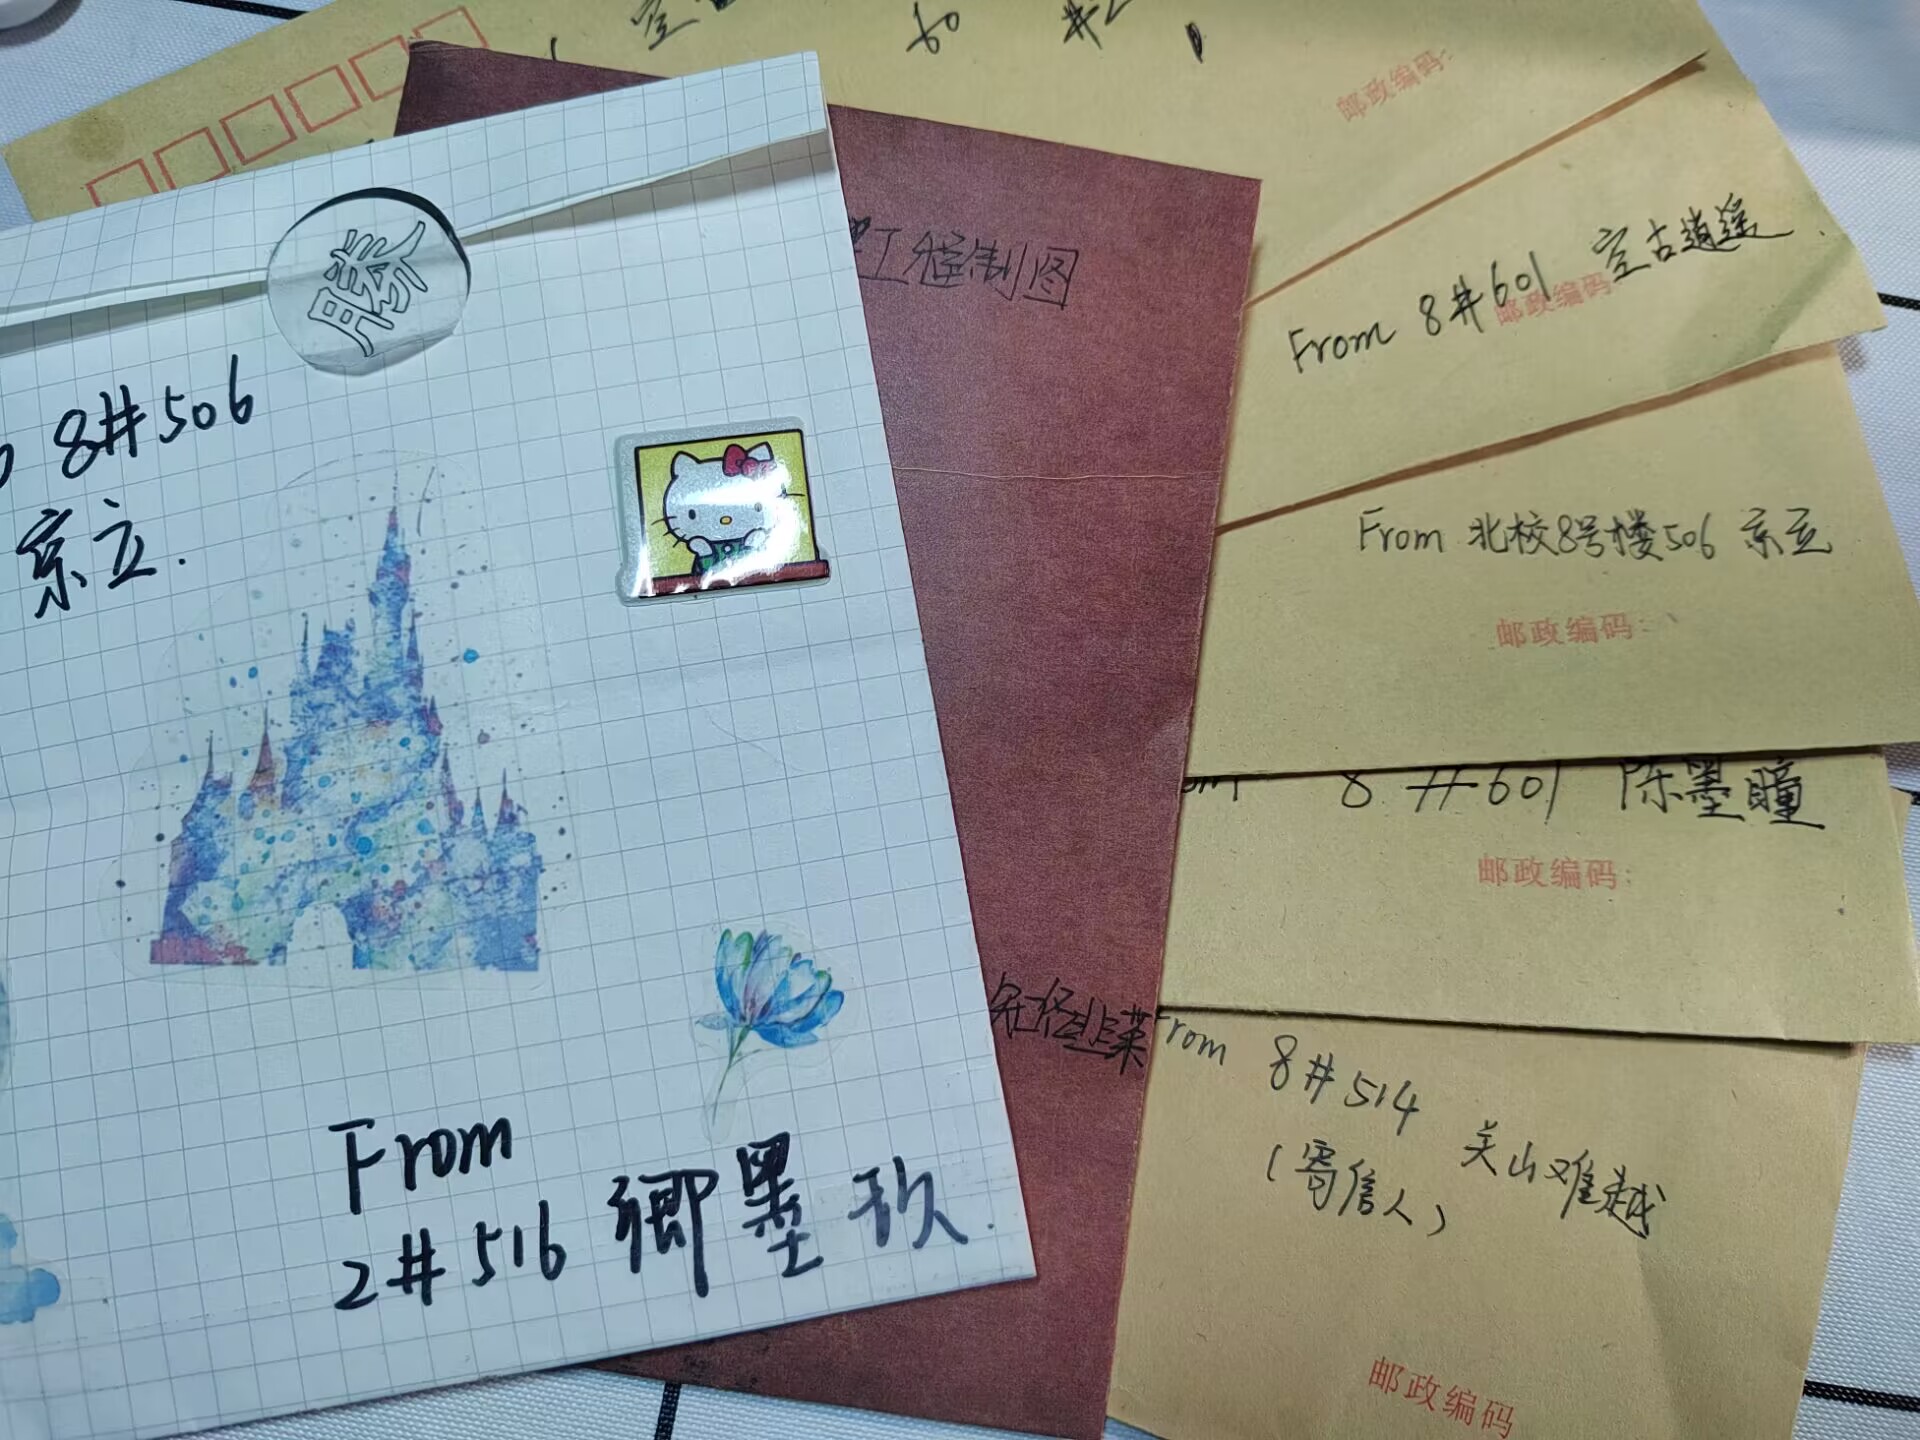 腾
8#506
京立.
From
2#516 卿墨玖.
工程制图
邮政编码:
From 8#601 室古逍遥
邮政编码
From 北校8号楼506 京立
邮政编码:
8#601 陈墨瞳
邮政编码:
From 8#514 关山难越
(寄信人)
邮政编码